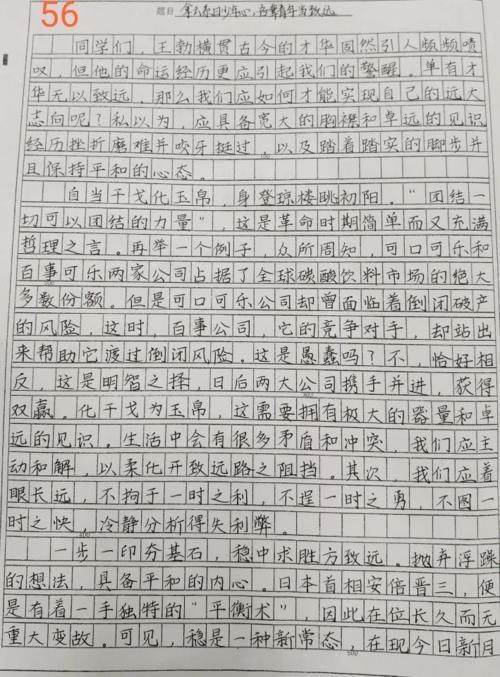 56
题目 拿下昂日少年心，吾辈青年当致远
同学们，王勃横贯古今的才华固然引人频频喷
叹，但他的命运经历更应引起我们的警醒。单有才
华无以致远，那么我们应如何才能实现自己的远大
志向呢？私以为，应具备宽大的胸襟和卓远的见识
经历挫折磨难并咬牙挺过，以及踏着踏实的脚步并
且保持平和的心态。
自当干戈化玉帛，身登琼楼眺初阳。“团结一
切可以团结的力量”，这是革命时期简单而又充满
哲理之言。再举一个例子，众所周知，可口可乐和
百事可乐两家公司占据了全球碳酸饮料市场的绝大
多数份额。但是可口可乐公司却曾面临着倒闭破产
的风险，这时，百事公司，它的竞争对手，却站出
来帮助它渡过倒闭风险。这是愚蠢吗？不，恰好相
反，这是明智之择，日后两大公司携手并进，获得
双赢。化干戈为玉帛，这需要拥有极大的器量和卓
远的见识。生活中会有很多矛盾和冲突，我们应主
动和解，以柔化开致远路之阻挡。其次，我们应着
眼长远，不拘于一时之利，不逞一时之勇，不图一
时之快，冷静分析得失利弊。
一步一印夯基石，稳中求胜方致远。抛弃浮躁
的想法，具备平和的内心。日本首相安倍晋三，便
是有着一手独特的“平衡术”，因此在位长久而无
重大变故。可见，稳是一种新常态，在现今日新月